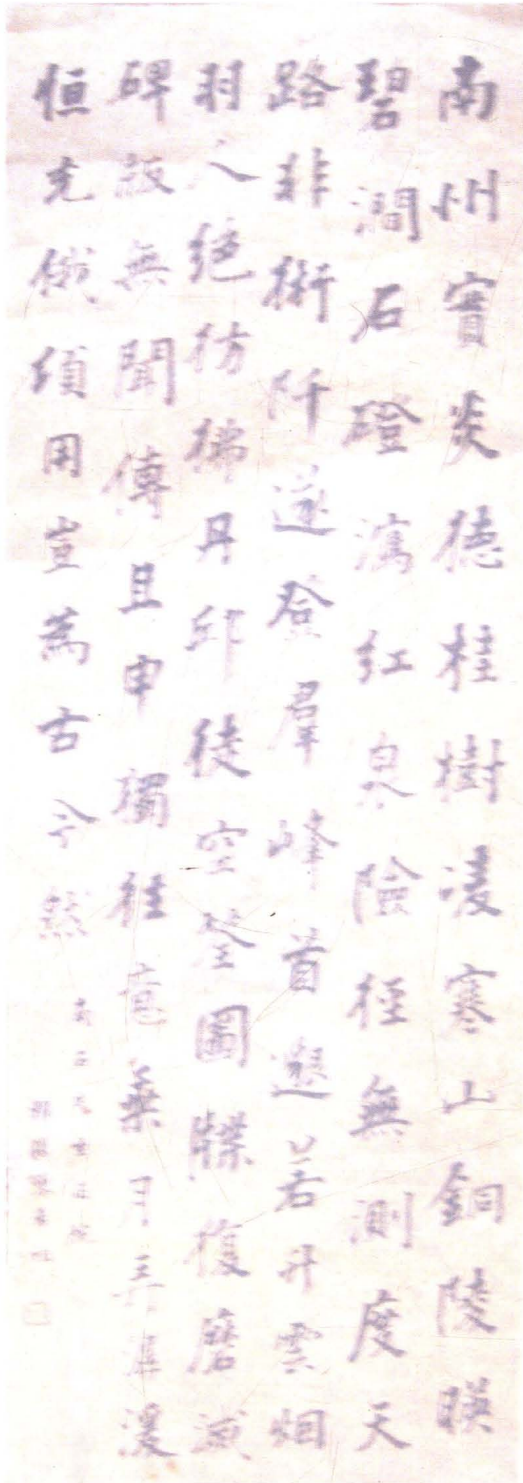 南州實炎德桂樹凌寒山銅陵暎
碧澗石磴瀉紅泉險徑無測度天
路非術阡遂登羣峰首邈若升雲烟
羽人絕彷彿丹邱徒空筌圖牒復磨滅
碑版無聞傳且申獨往意乗月弄潺湲
恒充俄頃用豈為古今然